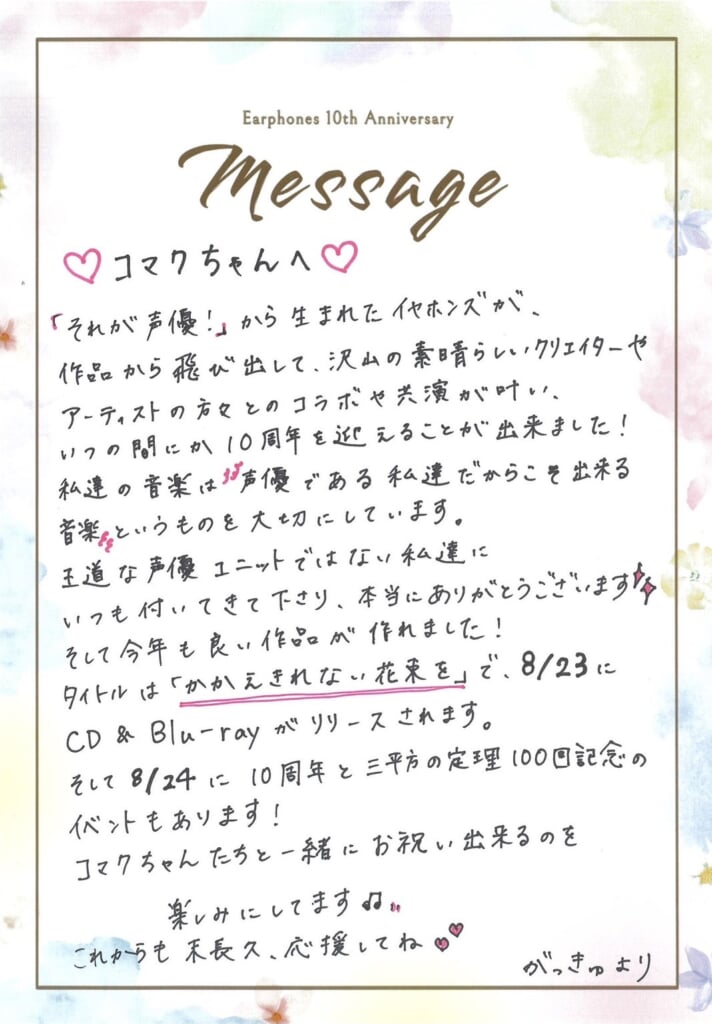 Earphones 10th Anniversary
Message
♡コマクちゃんへ♡
「それが声優!」から生まれたイヤホンズが、
作品から飛び出して、沢山の素晴らしいクリエイターや
アーティストの方々とのコラボや共演が叶い、
いつの間にか10周年を迎えることが出来ました!
私達の音楽は〝声優である私達だからこそ出来る
音楽〟というものを大切にしています。
王道な声優ユニットではない私達に
いつも付いてきて下さり、本当にありがとうございます
そして今年も良い作品が作れました!
タイトルは「かかえきれない花束を」で、8/23に
CD & Blu-rayがリリースされます。
そして8/24に10周年と三平方の定理100回記念の
イベントもあります!
コマクちゃんたちと一緒にお祝い出来るのを
楽しみにしてます♫
これからも末長久、応援してね
がっきゅより